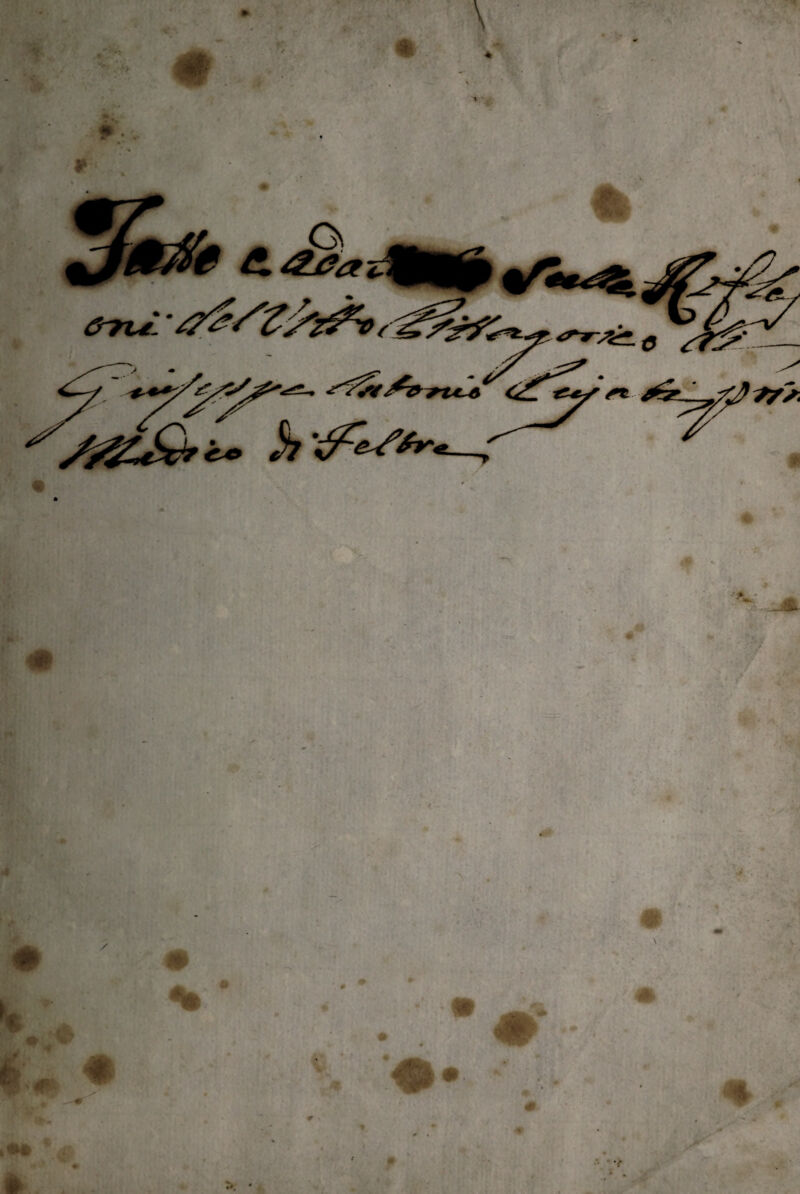 Fatto e Sulle Rifle
oni del Vitto Pittagorico di
Giuseppe Antonio Pujati prim
Medico di Feltre